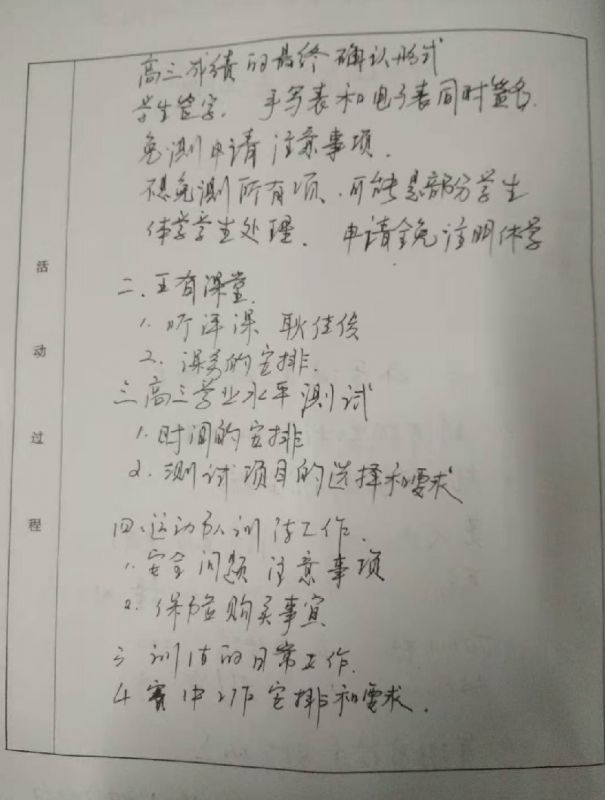 高三成绩的最终确认形式
学生签字. 手写表和电子表同时签名.
免测申请注意事项.
不是免测所有项、可能是部分学生
休学学生处理. 申请全免注明休学
二. 五有课堂.
1. 听评课 耿佳俊
2. 课务的安排.
三 高三学业水平测试
1. 时间的安排
2. 测试项目的选择和要求
四. 运动队训练工作.
1. 安全问题 注意事项
2. 保险购买事宜
3 训练的日常工作.
4 赛 安排和要求.
活动过程